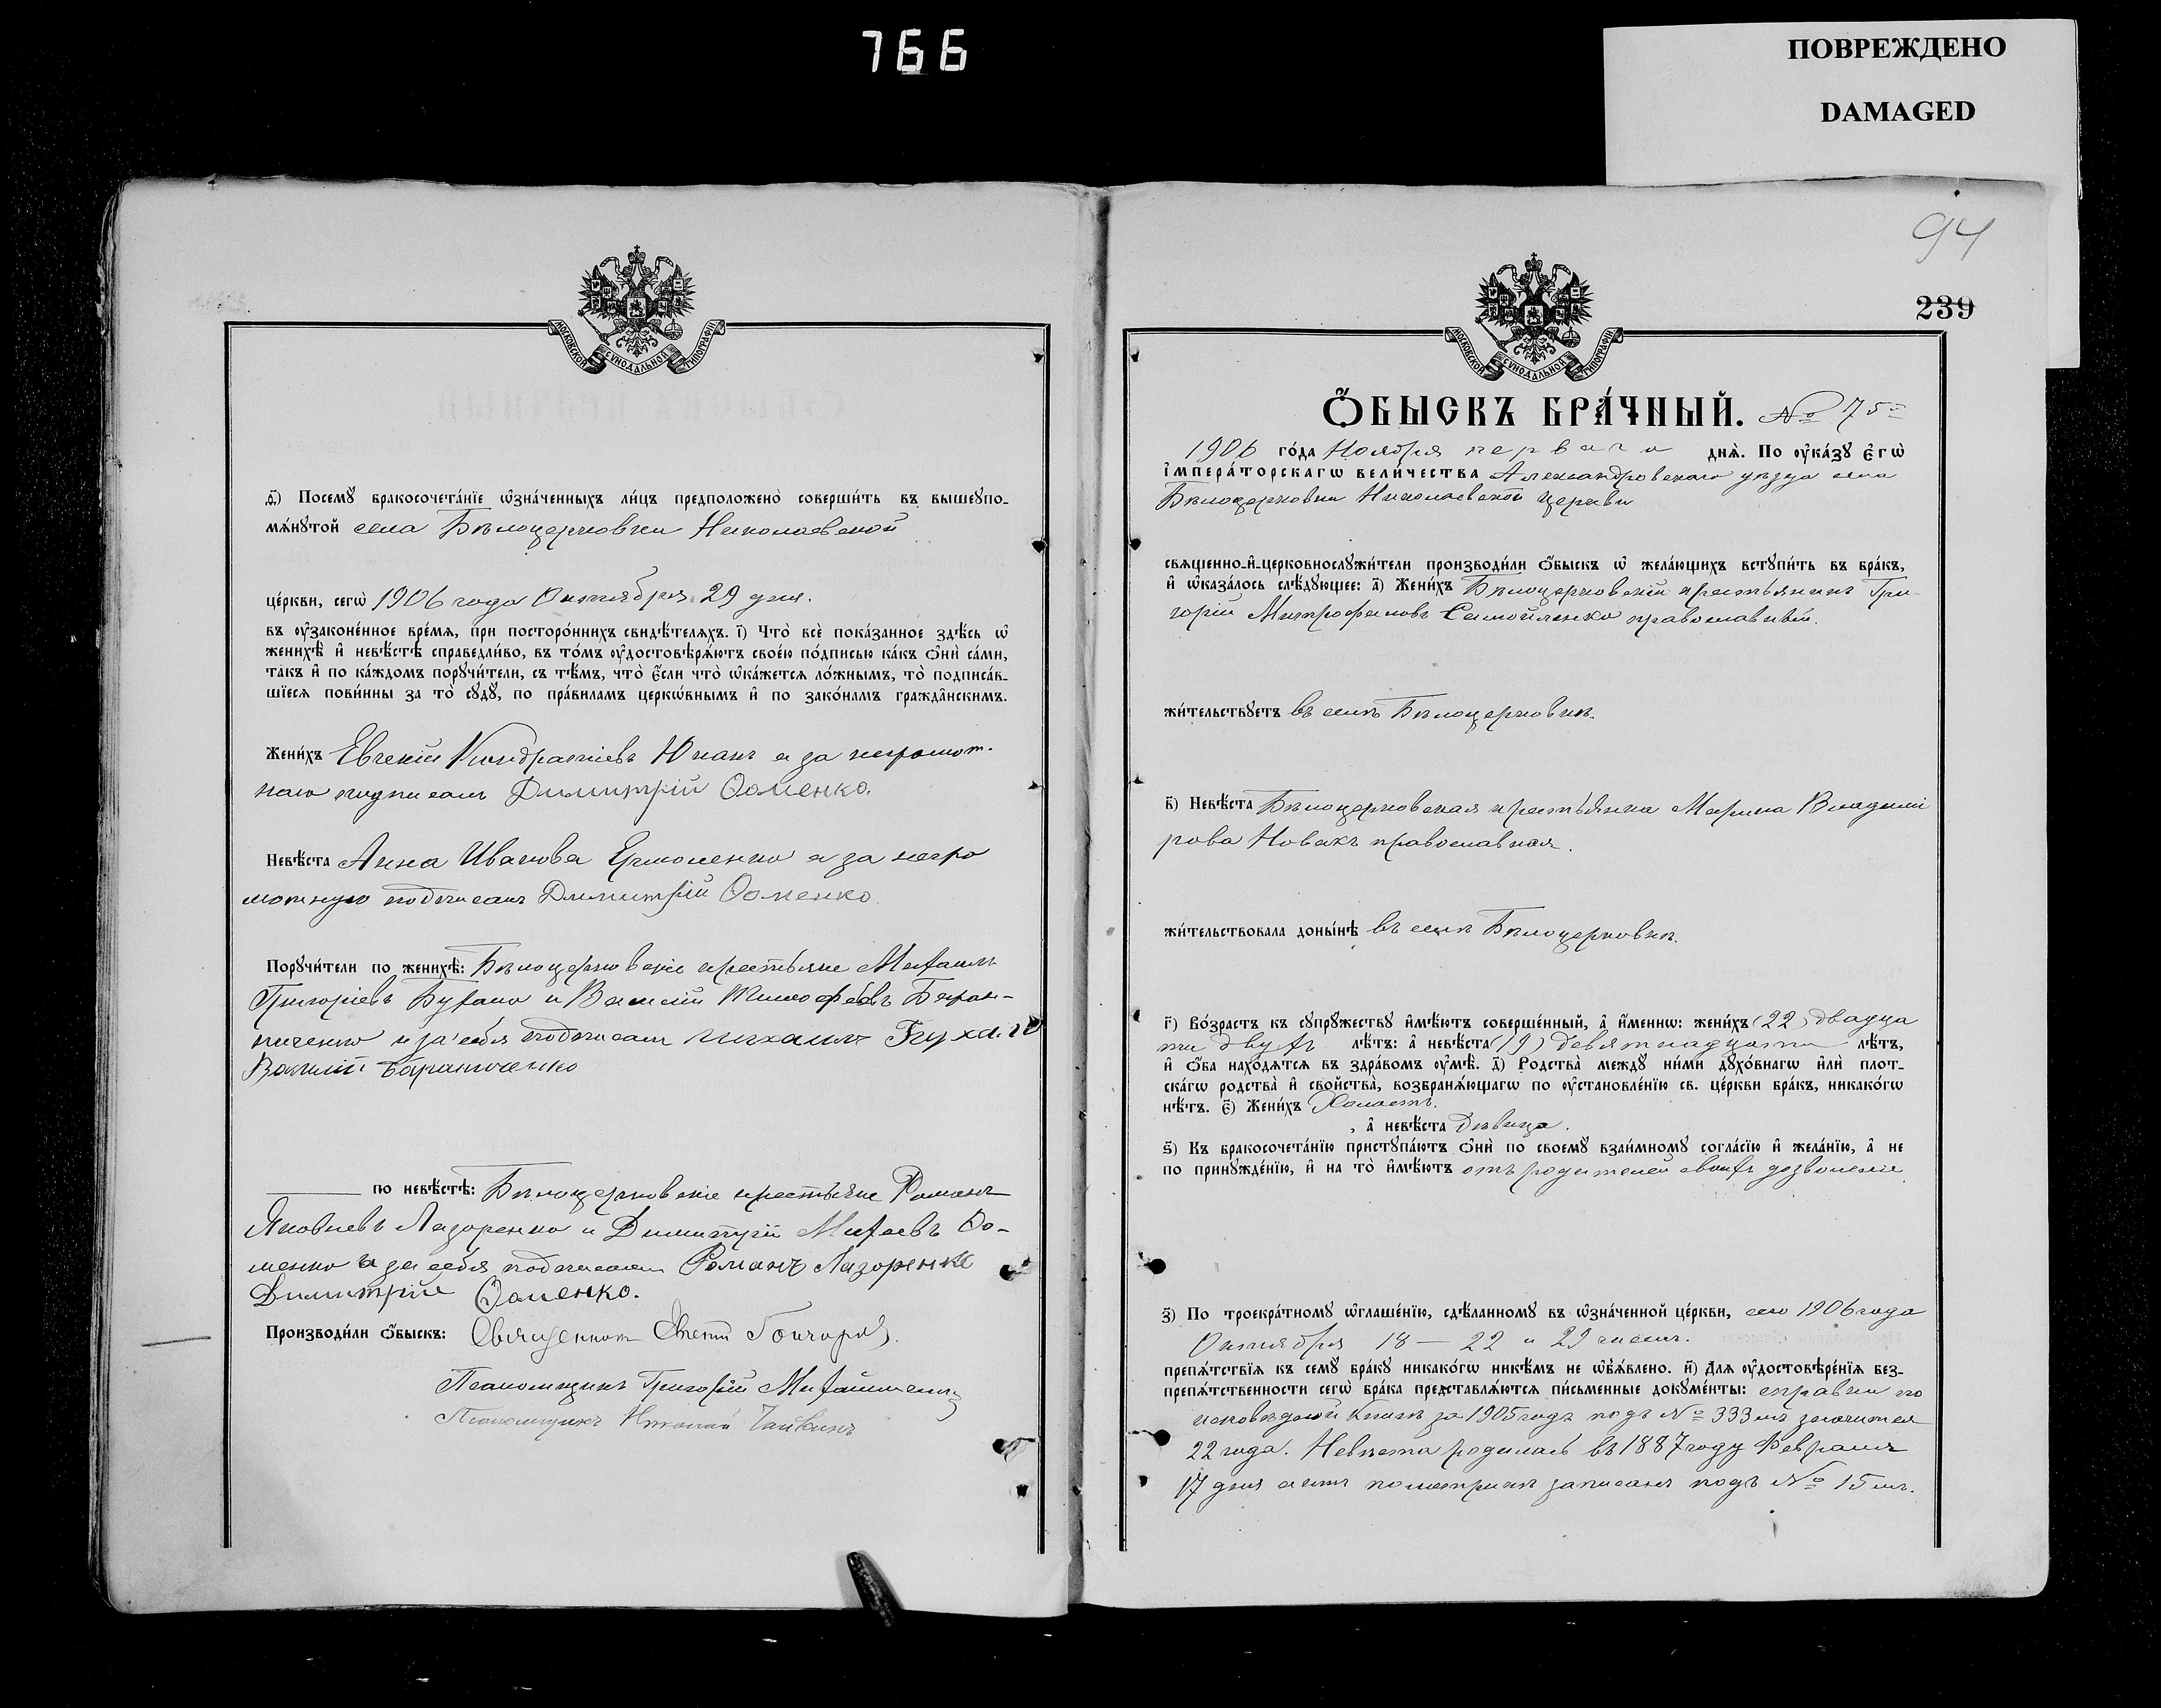 766
ПОВРЕЖДЕНО
DAMAGED
МОСКОВСКОЙ СУНОДАЛЬНОЙ ТИПОГРАФІИ
Посемꙋ бракосочета́нїе ѡ҆зна́ченныхъ ли́цъ предположено̀ соверши́ть въ вышеꙋпо-
мѧ́нꙋтой села Бѣлоцерковки Николаевской
це́ркви, сегѡ̀ 1906 года Октября 29 дня.
въ ᲂу҆законе́нное вре́мѧ, при посторо́ннихъ свидѣ́телѧхъ. і҃) Что̀ всѐ пока́занное здѣ́сь ѡ҆
женихѣ̀ и҆ невѣ́стѣ справедли́во, въ то́мъ ᲂу҆достовѣрѧ́ютъ свое́ю по́дписью ка́къ ѻ҆нѝ са́ми,
та́къ и҆ по ка́ждомъ порꙋчи́тели, съ тѣ́мъ, что̀ є҆́сли что̀ ѡ҆ка́жетсѧ ло́жнымъ, то̀ подписа́в-
шїесѧ пови́нны за то̀ сꙋдꙋ̀, по пра́виламъ церкѡ́внымъ и҆ по зако́намъ гражда̂нскимъ.
Жени́хъ Евгеній Кондратіевъ Юнакъ а за неграмот-
наго подписалъ Димитрій Ѳоменко.
Невѣ́ста Анна Иванова Ермоленко а за негра
мотную подписалъ Димитрій Ѳоменко
Порꙋчи́тели по женихѣ̀: Бѣлоцерковскіе крестьяне Михаилъ
Григоріевъ Бухало и Василій Тимофѣевъ Баран-
ниченко и за себя подписали Михаилъ Бухало
Василій Бараниченко
по невѣ́стѣ: Бѣлоцерковскіе крестьяне Романъ
Яковлевъ Лазоренко и Димитрій Михаевъ Ѳо-
менко а за себя подписали Романъ Лазоренко
Димитрій Ѳоменко.
Производи́ли ѻ҆́быскъ: Священникъ Гончаровъ.
Псаломщикъ Григорій
Псаломщикъ Николай
94
239
МОСКОВСКОЙ СУНОДАЛЬНОЙ ТИПОГРАФІИ
Ѻ҆́БЫСКЪ БРА́ЧНЫЙ. № 75
1906 го́да Ноября перваго днѧ̀. По ᲂу҆ка́зꙋ є҆гѡ̀
і҆мпера́торскагѡ вели́чества Александровскаго уѣзда села
Бѣлоцерковки Николаевской церкви
свѧщенно-и҆-церковнослꙋжи́тели производи́ли ѻ҆́быскъ ѡ҆ жела́ющихъ встꙋпи́ть въ бра́къ,
и҆ ѡ҆каза́лось слѣ́дꙋющее: а҃) Жени́хъ Бѣлоцерковскій крестьянинъ Гри-
горій Митрофановъ Самойленко православный.
жи́тельствꙋетъ въ селѣ Бѣлоцерковкѣ.
в҃) Невѣ́ста Бѣлоцерковская крестьянка Марина Владими
рова Новакъ православная.
жи́тельствовала доны́нѣ въ селѣ Бѣлоцерковкѣ.
г҃) Во́зрастъ къ сꙋпрꙋ́жествꙋ и҆мѣ́ютъ соверше́нный, а҆̀ и҆́меннѡ: жени́хъ (22) двадца
ти двухъ лѣ́тъ: а҆̀ невѣ́ста (19) девятнадцати лѣ́тъ,
и҆ ѻ҆́ба нахо́дѧтсѧ въ здра́вомъ ᲂу҆мѣ̀. д҃) Родства̀ междꙋ̀ ни́ми дꙋхо́внагѡ и҆лѝ плот-
ска́гѡ родства̀ и҆ сво́йства, возбранѧ́ющагѡ по ᲂу҆становле́нїю св. це́ркви бра́къ, никако́гѡ
нѣ́тъ. є҃) Жени́хъ Холостъ.
, а҆̀ невѣ́ста дѣвица.
ѕ҃) Къ бракосочета́нїю пристꙋпа́ютъ ѻ҆нѝ по своемꙋ̀ взаи́мномꙋ согла́сїю и҆ жела́нїю, а҆̀ не
по принꙋжде́нїю, и҆ на то̀ и҆мѣ́ютъ отъ родителей своихъ дозволеніе
з҃) По троекра́тномꙋ ѡ҆глаше́нїю, сдѣ́ланномꙋ въ ѡ҆зна́ченной це́ркви, сего 1906 года
Октября 18 — 22 и 29 чиселъ.
препѧ́тствїѧ къ семꙋ̀ бра́кꙋ никако́гѡ никѣ́мъ не ѡ҆б̾ѧ́влено. и҃) Для ᲂу҆достовѣре́нїѧ без-
препѧ́тственности сегѡ̀ бра́ка представлѧ́ютсѧ пи́сьменные докꙋме́нты: справки по
исповѣдной книгѣ за 1905 годъ подъ № 333мъ значится
22 года. Невѣста родилась въ 1887 году Февраля
17 дня актъ по метрикѣ записанъ подъ № 15мъ.